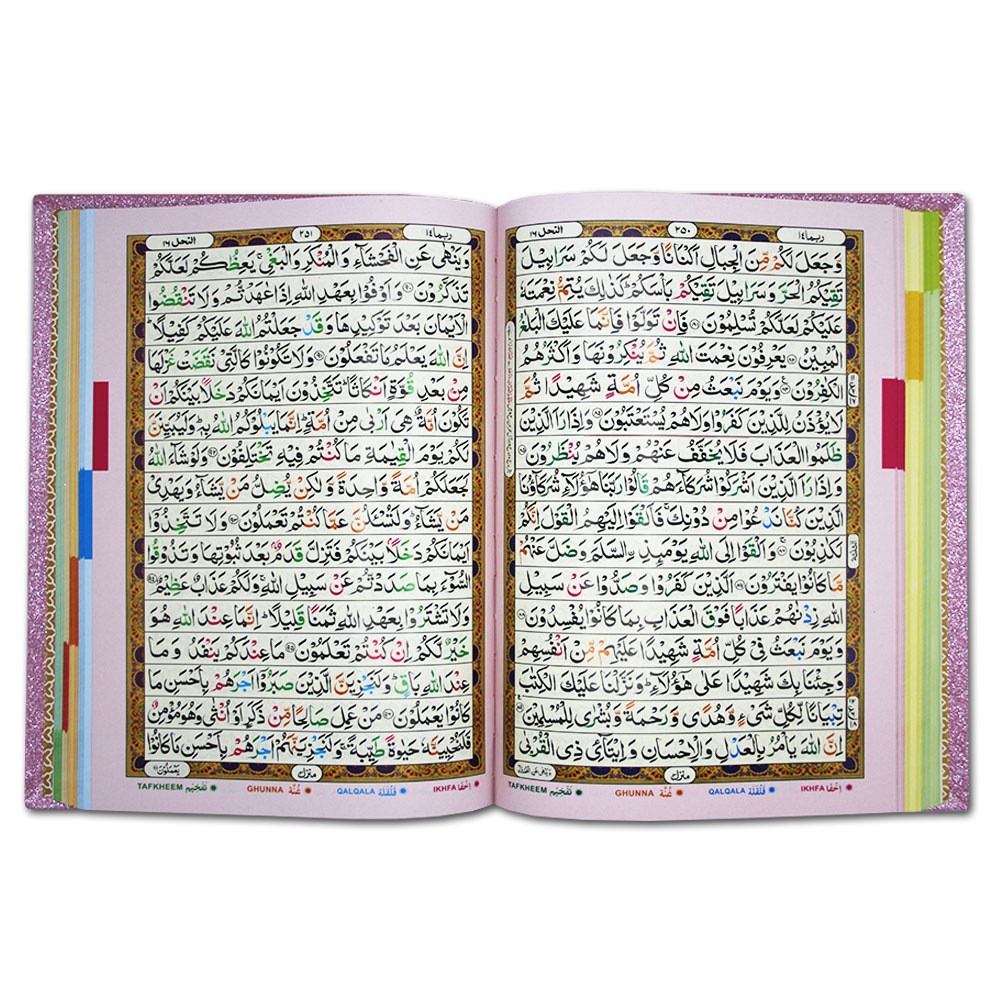 ربما ١٤
٢٥٠
النحل ١٦
وَجَعَلَ لَكُمْ مِّنَ الْجِبَالِ اَكْنَانًا وَّجَعَلَ لَكُمْ سَرَابِيْلَ
تَقِيْكُمُ الْحَرَّ وَسَرَابِيْلَ تَقِيْكُمْ بَاْسَكُمْ ؕ كَذٰلِكَ يُتِمُّ نِعْمَتَهٗ
عَلَيْكُمْ لَعَلَّكُمْ تُسْلِمُوْنَ ﴿۸۱﴾ فَاِنْ تَوَلَّوْا فَاِنَّمَا عَلَيْكَ الْبَلٰغُ
الْمُبِيْنُ ﴿۸۲﴾ يَعْرِفُوْنَ نِعْمَتَ اللّٰهِ ثُمَّ يُنْكِرُوْنَهَا وَاَكْثَرُهُمُ
الْكٰفِرُوْنَ ﴿۸۳﴾ وَيَوْمَ نَبْعَثُ مِنْ كُلِّ اُمَّةٍ شَهِيْدًا ثُمَّ
لَا يُؤْذَنُ لِلَّذِيْنَ كَفَرُوْا وَلَا هُمْ يُسْتَعْتَبُوْنَ ﴿۸۴﴾ وَاِذَا رَاَ الَّذِيْنَ
ظَلَمُوا الْعَذَابَ فَلَا يُخَفَّفُ عَنْهُمْ وَلَا هُمْ يُنْظَرُوْنَ ﴿۸۵﴾
وَاِذَا رَاَ الَّذِيْنَ اَشْرَكُوْا شُرَكَآءَهُمْ قَالُوْا رَبَّنَا هٰٓؤُلَآءِ شُرَكَآؤُنَا
الَّذِيْنَ كُنَّا نَدْعُوْا مِنْ دُوْنِكَ ۚ فَاَلْقَوْا اِلَيْهِمُ الْقَوْلَ اِنَّكُمْ
لَكٰذِبُوْنَ ﴿۸۶﴾ وَاَلْقَوْا اِلَى اللّٰهِ يَوْمَئِذِ ِۨالسَّلَمَ وَضَلَّ عَنْهُمْ
مَّا كَانُوْا يَفْتَرُوْنَ ﴿۸۷﴾ اَلَّذِيْنَ كَفَرُوْا وَصَدُّوْا عَنْ سَبِيْلِ
اللّٰهِ زِدْنٰهُمْ عَذَابًا فَوْقَ الْعَذَابِ بِمَا كَانُوْا يُفْسِدُوْنَ ﴿۸۸﴾
وَيَوْمَ نَبْعَثُ فِيْ كُلِّ اُمَّةٍ شَهِيْدًا عَلَيْهِمْ مِّنْ اَنْفُسِهِمْ
وَجِئْنَا بِكَ شَهِيْدًا عَلٰى هٰٓؤُلَآءِ ؕ وَنَزَّلْنَا عَلَيْكَ الْكِتٰبَ
تِبْيَانًا لِّكُلِّ شَيْءٍ وَّهُدًى وَّرَحْمَةً وَّبُشْرٰى لِلْمُسْلِمِيْنَ ﴿۸۹﴾
اِنَّ اللّٰهَ يَاْمُرُ بِالْعَدْلِ وَالْاِحْسَانِ وَاِيْتَآئِ ذِي الْقُرْبٰى
منزل
اِخْفَا IKHFA
قَلْقَلَة QALQALA
غُنَّة GHUNNA
تَفْخِيْم TAFKHEEM
ربما ١٤
٢٥١
النحل ١٦
وَيَنْهٰى عَنِ الْفَحْشَآءِ وَالْمُنْكَرِ وَالْبَغْيِ ۚ يَعِظُكُمْ لَعَلَّكُمْ
تَذَكَّرُوْنَ ﴿۹۰﴾ وَاَوْفُوْا بِعَهْدِ اللّٰهِ اِذَا عٰهَدْتُّمْ وَلَا تَنْقُضُوا
الْاَيْمَانَ بَعْدَ تَوْكِيْدِهَا وَقَدْ جَعَلْتُمُ اللّٰهَ عَلَيْكُمْ كَفِيْلًا ؕ
اِنَّ اللّٰهَ يَعْلَمُ مَا تَفْعَلُوْنَ ﴿۹۱﴾ وَلَا تَكُوْنُوْا كَالَّتِيْ نَقَضَتْ غَزْلَهَا
مِنْ بَعْدِ قُوَّةٍ اَنْكَاثًا ؕ تَتَّخِذُوْنَ اَيْمَانَكُمْ دَخَلًا بَيْنَكُمْ اَنْ
تَكُوْنَ اُمَّةٌ هِيَ اَرْبٰى مِنْ اُمَّةٍ ؕ اِنَّمَا يَبْلُوْكُمُ اللّٰهُ بِهٖ ؕ وَلَيُبَيِّنَنَّ
لَكُمْ يَوْمَ الْقِيٰمَةِ مَا كُنْتُمْ فِيْهِ تَخْتَلِفُوْنَ ﴿۹۲﴾ وَلَوْ شَآءَ اللّٰهُ
لَجَعَلَكُمْ اُمَّةً وَّاحِدَةً وَّلٰكِنْ يُّضِلُّ مَنْ يَّشَآءُ وَيَهْدِيْ
مَنْ يَّشَآءُ ؕ وَلَتُسْـَٔلُنَّ عَمَّا كُنْتُمْ تَعْمَلُوْنَ ﴿۹۳﴾ وَلَا تَتَّخِذُوْٓا
اَيْمَانَكُمْ دَخَلًا بَيْنَكُمْ فَتَزِلَّ قَدَمٌ بَعْدَ ثُبُوْتِهَا وَتَذُوْقُوا
السُّوْٓءَ بِمَا صَدَدْتُّمْ عَنْ سَبِيْلِ اللّٰهِ ۚ وَلَكُمْ عَذَابٌ عَظِيْمٌ ﴿۹۴﴾
وَلَا تَشْتَرُوْا بِعَهْدِ اللّٰهِ ثَمَنًا قَلِيْلًا ؕ اِنَّمَا عِنْدَ اللّٰهِ هُوَ
خَيْرٌ لَّكُمْ اِنْ كُنْتُمْ تَعْلَمُوْنَ ﴿۹۵﴾ مَا عِنْدَكُمْ يَنْفَدُ وَمَا
عِنْدَ اللّٰهِ بَاقٍ ؕ وَلَنَجْزِيَنَّ الَّذِيْنَ صَبَرُوْٓا اَجْرَهُمْ بِاَحْسَنِ مَا
كَانُوْا يَعْمَلُوْنَ ﴿۹۶﴾ مَنْ عَمِلَ صَالِحًا مِّنْ ذَكَرٍ اَوْ اُنْثٰى وَهُوَ مُؤْمِنٌ
فَلَنُحْيِيَنَّهٗ حَيٰوةً طَيِّبَةً ۚ وَلَنَجْزِيَنَّهُمْ اَجْرَهُمْ بِاَحْسَنِ مَا كَانُوْا
منزل
يَعْمَلُوْنَ ﴿۹۷﴾
اِخْفَا IKHFA
قَلْقَلَة QALQALA
غُنَّة GHUNNA
تَفْخِيْم TAFKHEEM